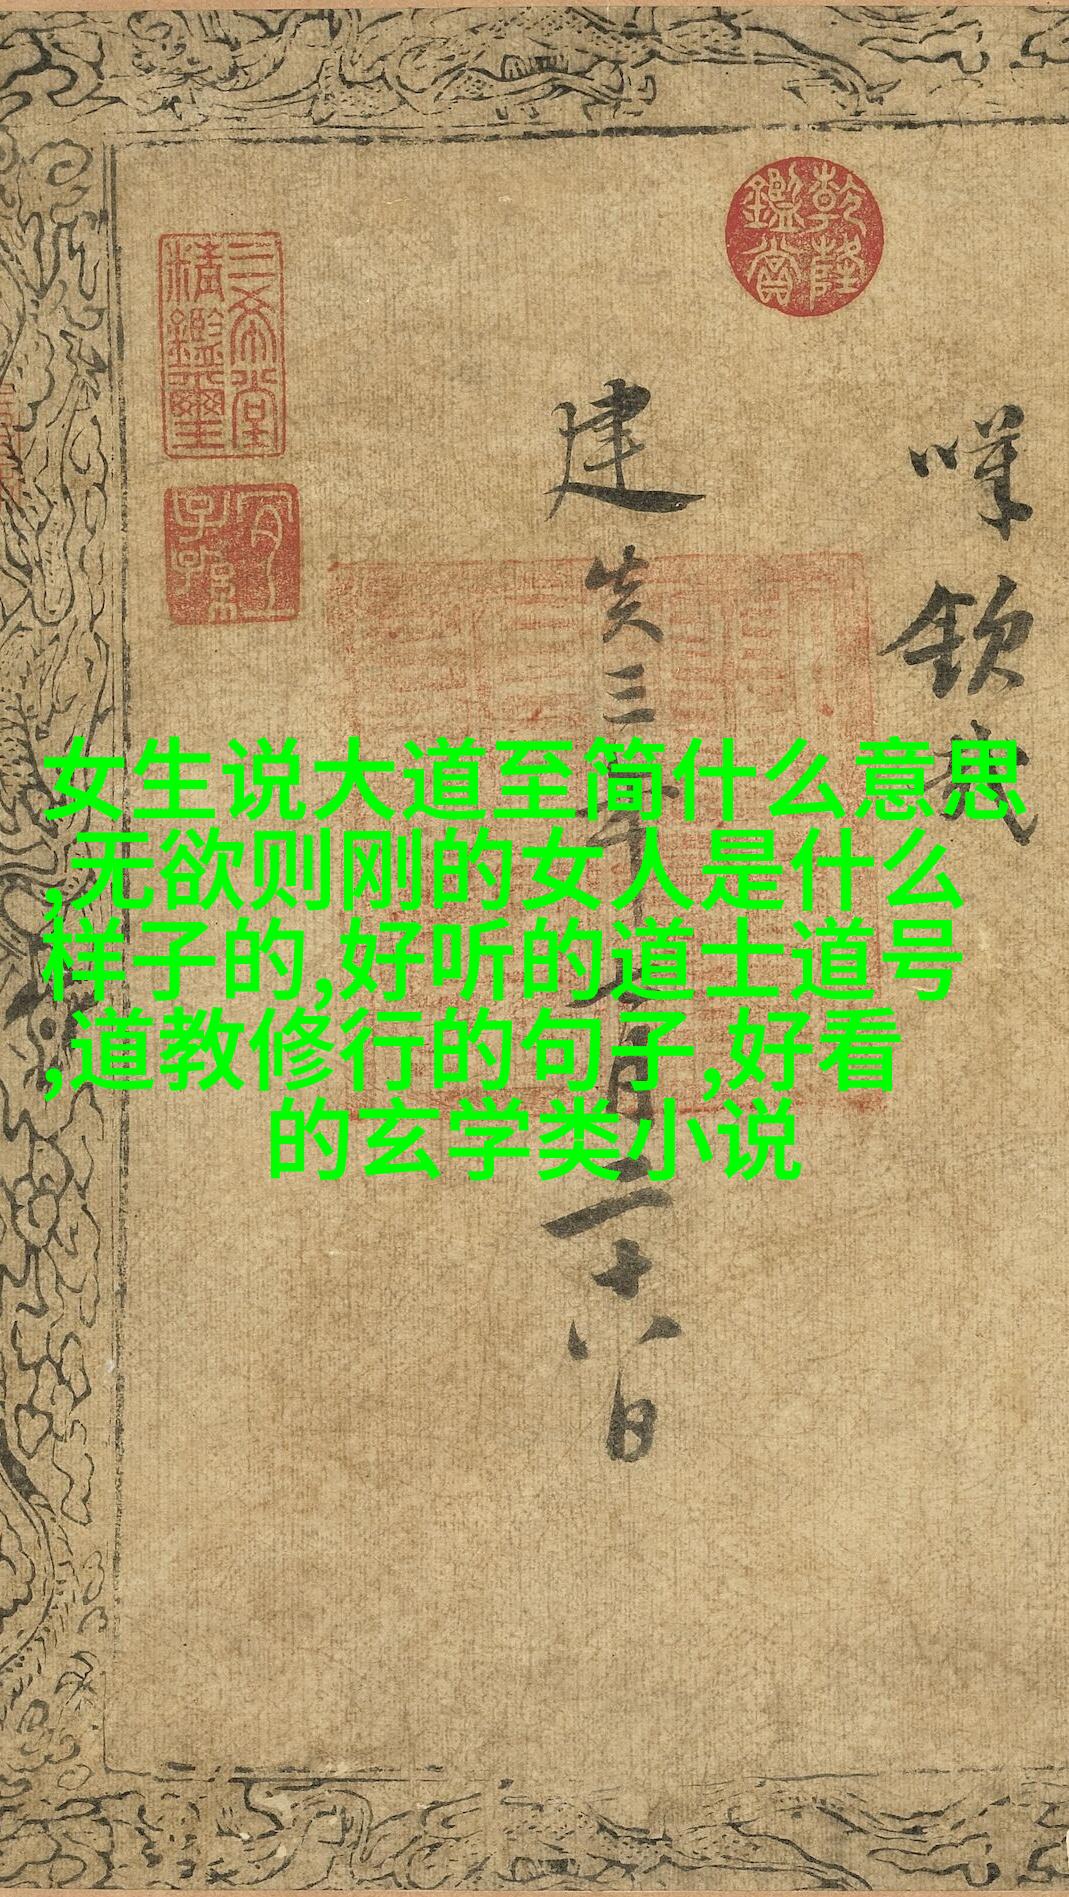 乾隆鑑賞
三希堂精鑑璽
宜子孫
欽哉
建炎三年月二十八日
女生说大道至简什么意思
,无欲则刚的女人是什么
样子的,好听的道士道号
,道教修行的句子,好看
的玄学类小说